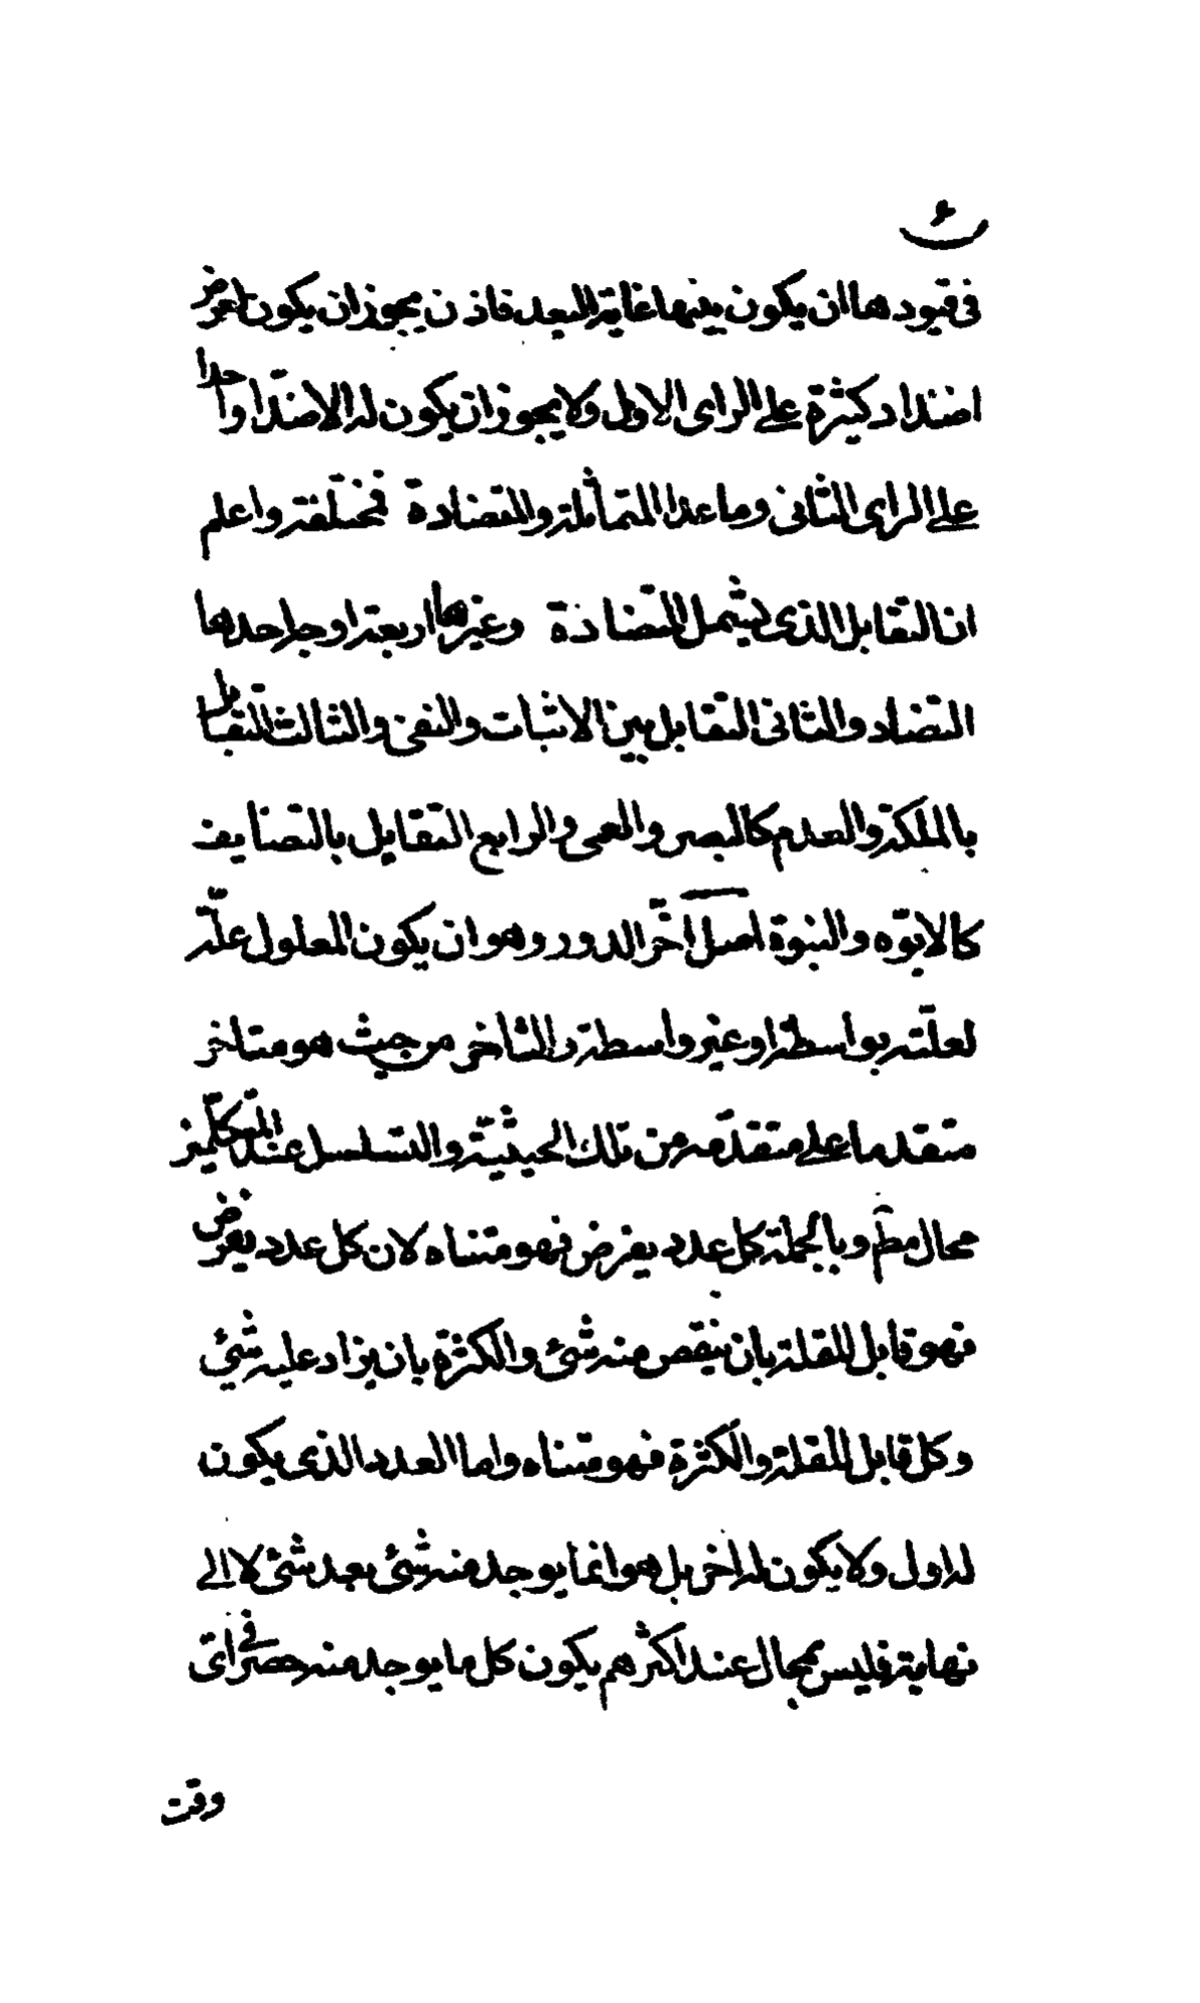 فى قيودها ان يكون بينها غاية البعد فاذن يجوز ان يكون لعرض
اضداد كثيرة على الراى الاول ولا يجوز ان يكون له الا ضدّا واحدا
على الراى الثانى وما عدا المتماثلة والمتضادة فمختلفة واعلم
ان التقابل الذى يشمل المتضادة وغيرها اربعة اوجه احدها
التضاد والثانى التقابل بين الاثبات والنفى والثالث التقابل
بالملكة والعدم كالبصر والعمى والرابع التقابل بالتضايف
كالابوّه والبنوة اصل آخر الدور وهو ان يكون المعلول علّة
لعلّته بواسطة او غير واسطة والمتأخر من حيث هو متاخر
متقدما على متقدّمه من تلك الحيثيّة والتسلسل عند المتكلّمين
محال مطم وبالجملة كل عدد يفرض فهو متناه لان كل عدد يفرض
فهو قابل للقلة بان ينقص منه شئ والكثرة بان يزاد عليه شئ
وكل قابل للقلة والكثرة فهو متناه واما العدد الذى يكون
له اول ولا يكون له اخر بل هو انما يوجد منه شئ بعد شئ لا الى
نهاية فليس بمحال عند اكثرهم يكون كل ما يوجد منه حصر فى اىّ
وقت